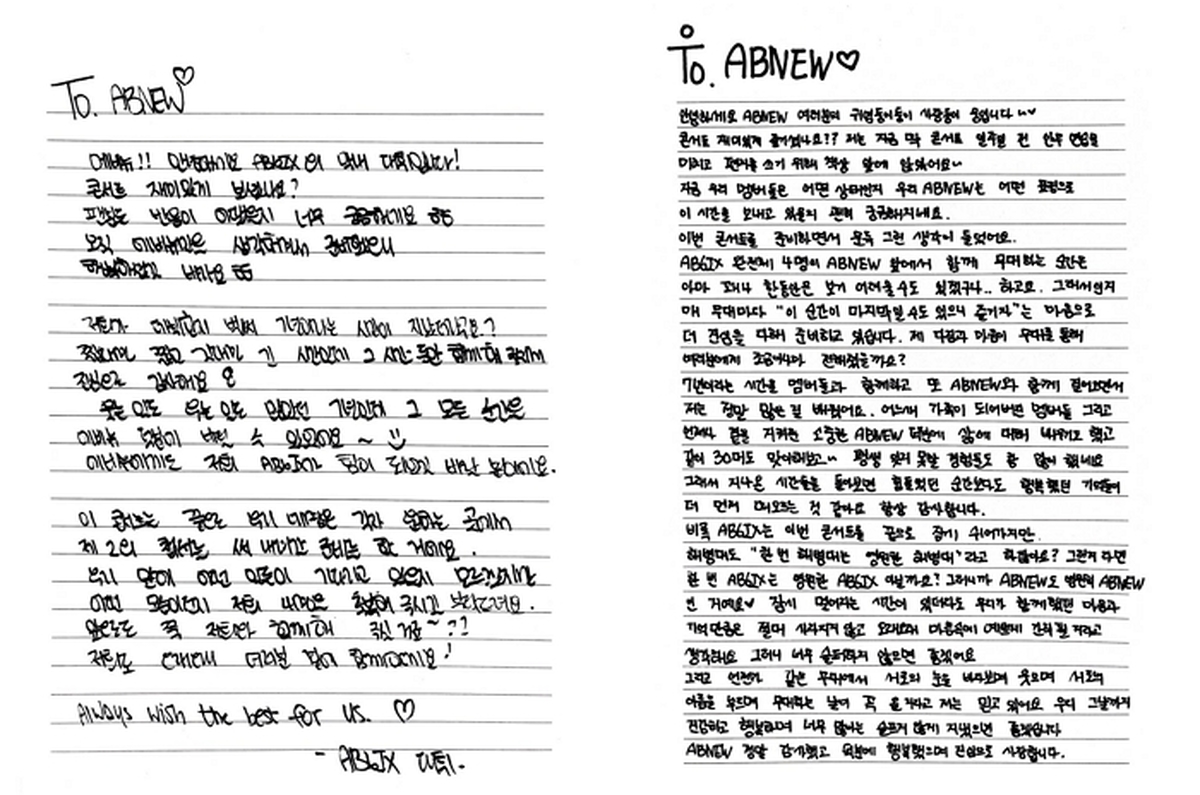 To. ABNEW♡
에비뉴!! 안녕하세요 AB6IX의 막내 대휘입니다!
콘서트 재미있게 보셨나요?
반응이 너무 궁금하네요
오직 에비뉴만을 생각하면서 준비했으니
저희가 데뷔한지 벌써 시간이 지났더라구요?
짧다면 짧고 길다면 긴 시간인데 그 시간 동안 함께해 주셔서
진심으로 감사해요
웃을 일도 우는 일도 그 모든 순간은
에비뉴 덕분이 수 있었어요 ~
에비뉴에게도 저희 AB6IX가 힘이 바랄 뿐이에요.
이 콘서트를 끝으로 우리 네명은 각자 곳에서
제 2의 써 내려갈 준비를 할 거에요.
우리 앞에 어떤 일들이 기다리고 있을지 모르겠지만
어떤 모습이던지 저희 네명을 주시길 바랄게요.
앞으로도 꼭 저희와 함께해 주실 거죠~??
저희도 여러분 함께할게요!
Always wish the best for us. ♡
- AB6IX 대휘.
To. ABNEW♡
안녕하세요 ABNEW 여러분의 귀염둥이 웅입니다
콘서트 재미있게 즐기셨나요?? 저는 지금 막 콘서트 일주일 전 안무 연습을
마치고 편지를 쓰기 위해 책상 앞에 앉았어요~
지금 우리 멤버들은 어떤 상태인지 우리 ABNEW는 어떤 표정으로
이 시간을 보내고 있을지 괜히 궁금해지네요.
이번 콘서트를 준비하면서 문득 그런 생각이 들었어요.
AB6IX 완전체 4명이 ABNEW 앞에서 함께 무대하는 순간은
아마 꽤나 한동안은 보기 어려울 수도 있겠구나.. 하고요. 그래서인지
매 무대마다 "이 순간이 마지막일 수도 있으니 즐기자"는 마음으로
더 진심을 다해 준비하고 있습니다. 제 다짐과 마음이 무대를 통해
여러분에게 조금이나마 전해졌을까요?
7년이라는 시간을 멤버들과 함께하고 또 ABNEW와 함께 걸어오면서
저는 정말 많은 걸 배웠어요. 어느새 가족이 되어버린 멤버들 그리고
언제나 곁을 지켜준 소중한 ABNEW 덕분에 삶에 대해 배우기도 했고
같이 30대도 맞이해보고~ 평생 잊지 못할 경험들도 참 많이 했네요
그래서 지나온 시간들을 돌아보면 힘들었던 순간보다도 행복했던 기억들이
더 먼저 떠오르는 것 같아요 항상 감사합니다.
비록 AB6IX는 이번 콘서트를 끝으로 잠시 쉬어가지만
해병대도 "한 번 해병대는 영원한 해병대"라고 하잖아요? 그렇게 다면
한 번 AB6IX는 영원한 AB6IX 아닐까요? 그러니까 ABNEW도 영원히 ABNEW
인 거예요♥ 잠시 멀어지는 시간이 있더라도 우리가 함께했던 마음과
기억만큼은 절대 사라지지 않고 오래오래 마음속에 예쁘게 간직될 거라고
생각해요 그러니 너무 슬퍼하지 않으면 좋겠어요
그리고 언젠가 같은 무대에서 서로의 눈을 바라보며 웃으며 서로의
이름을 부르며 무대하는 날이 꼭 올 거라고 저는 믿고 있어요 우리 그날까지
건강하고 행복하며 너무 많이는 슬프지 않게 지냈으면 좋겠습니다
ABNEW 정말 감사했고 덕분에 행복했으며 진심으로 사랑합니다.